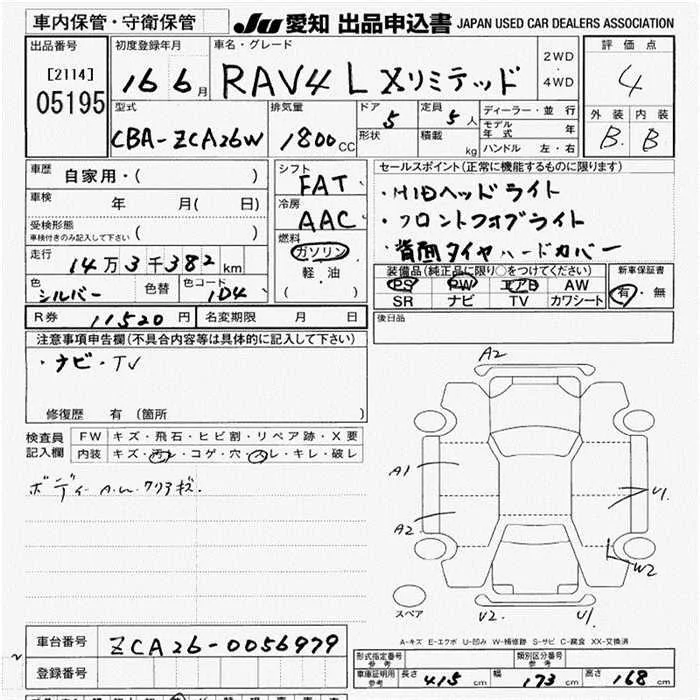 車内保管・守衛保管
JU 愛知 出品申込書 JAPAN USED CAR DEALERS ASSOCIATION
出品番号
[2114]
05195
初度登録年月
16 6月
車名・グレード
RAV4 L Xリミテッド
2WD
4WD
評価点
4
外装 内装
B B
型式
CBA-ZCA26W
排気量
1800 CC
ドア 5
形状
定員 5人
積載 kg
ディーラー・並行
モデル年式 年
ハンドル 左・右
車歴 自家用・( )
車検 年 月( 日)
受検形態
車検付きのみ記入して下さい ( )
走行 14万3千382km
色 シルバー 色替 色コード 1D4
シフト FAT
冷房 AAC
燃料
ガソリン
軽・油
( )
セールスポイント(正常に機能するものに限ります)
・HIDヘッドライト
・フロントフォグライト
・背面タイヤハードカバー
装備品(純正品に限り○をつけてください)
PS PW エアB AW
SR ナビ TV カワシート
新車保証書
有・無
R券 11520円 名変期限 月 日
後日品
注意事項申告欄(不具合内容等は具体的に記入して下さい)
・ナビ・TV
修復歴 有(箇所 )
検査員記入欄
FW キズ・飛石・ヒビ割・リペア跡・X要
内装 キズ・汚レ・コゲ・穴・スレ・キレ・破レ
A2
A1
A2
U1
W2
スペア
U2
U1
A-キズ E-エクボ U-凹み W-補修跡 S-サビ C-腐食 XX-交換済
車台番号 ZCA26-0056979
登録番号
形式指定番号 参考
類別区分番号 参考
車庫証明用 参考 長さ 415cm 幅 173cm 高さ 168cm